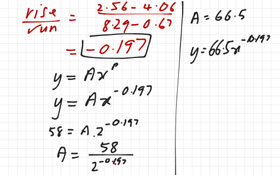 rise/run = 2.56-4.06/8.29-0.67
= -0.197
y = Ax^p
y = Ax^-0.197
58 = A.2^-0.197
A = 58/2^-0.197
A = 66.5
y = 66.5x^-0.197